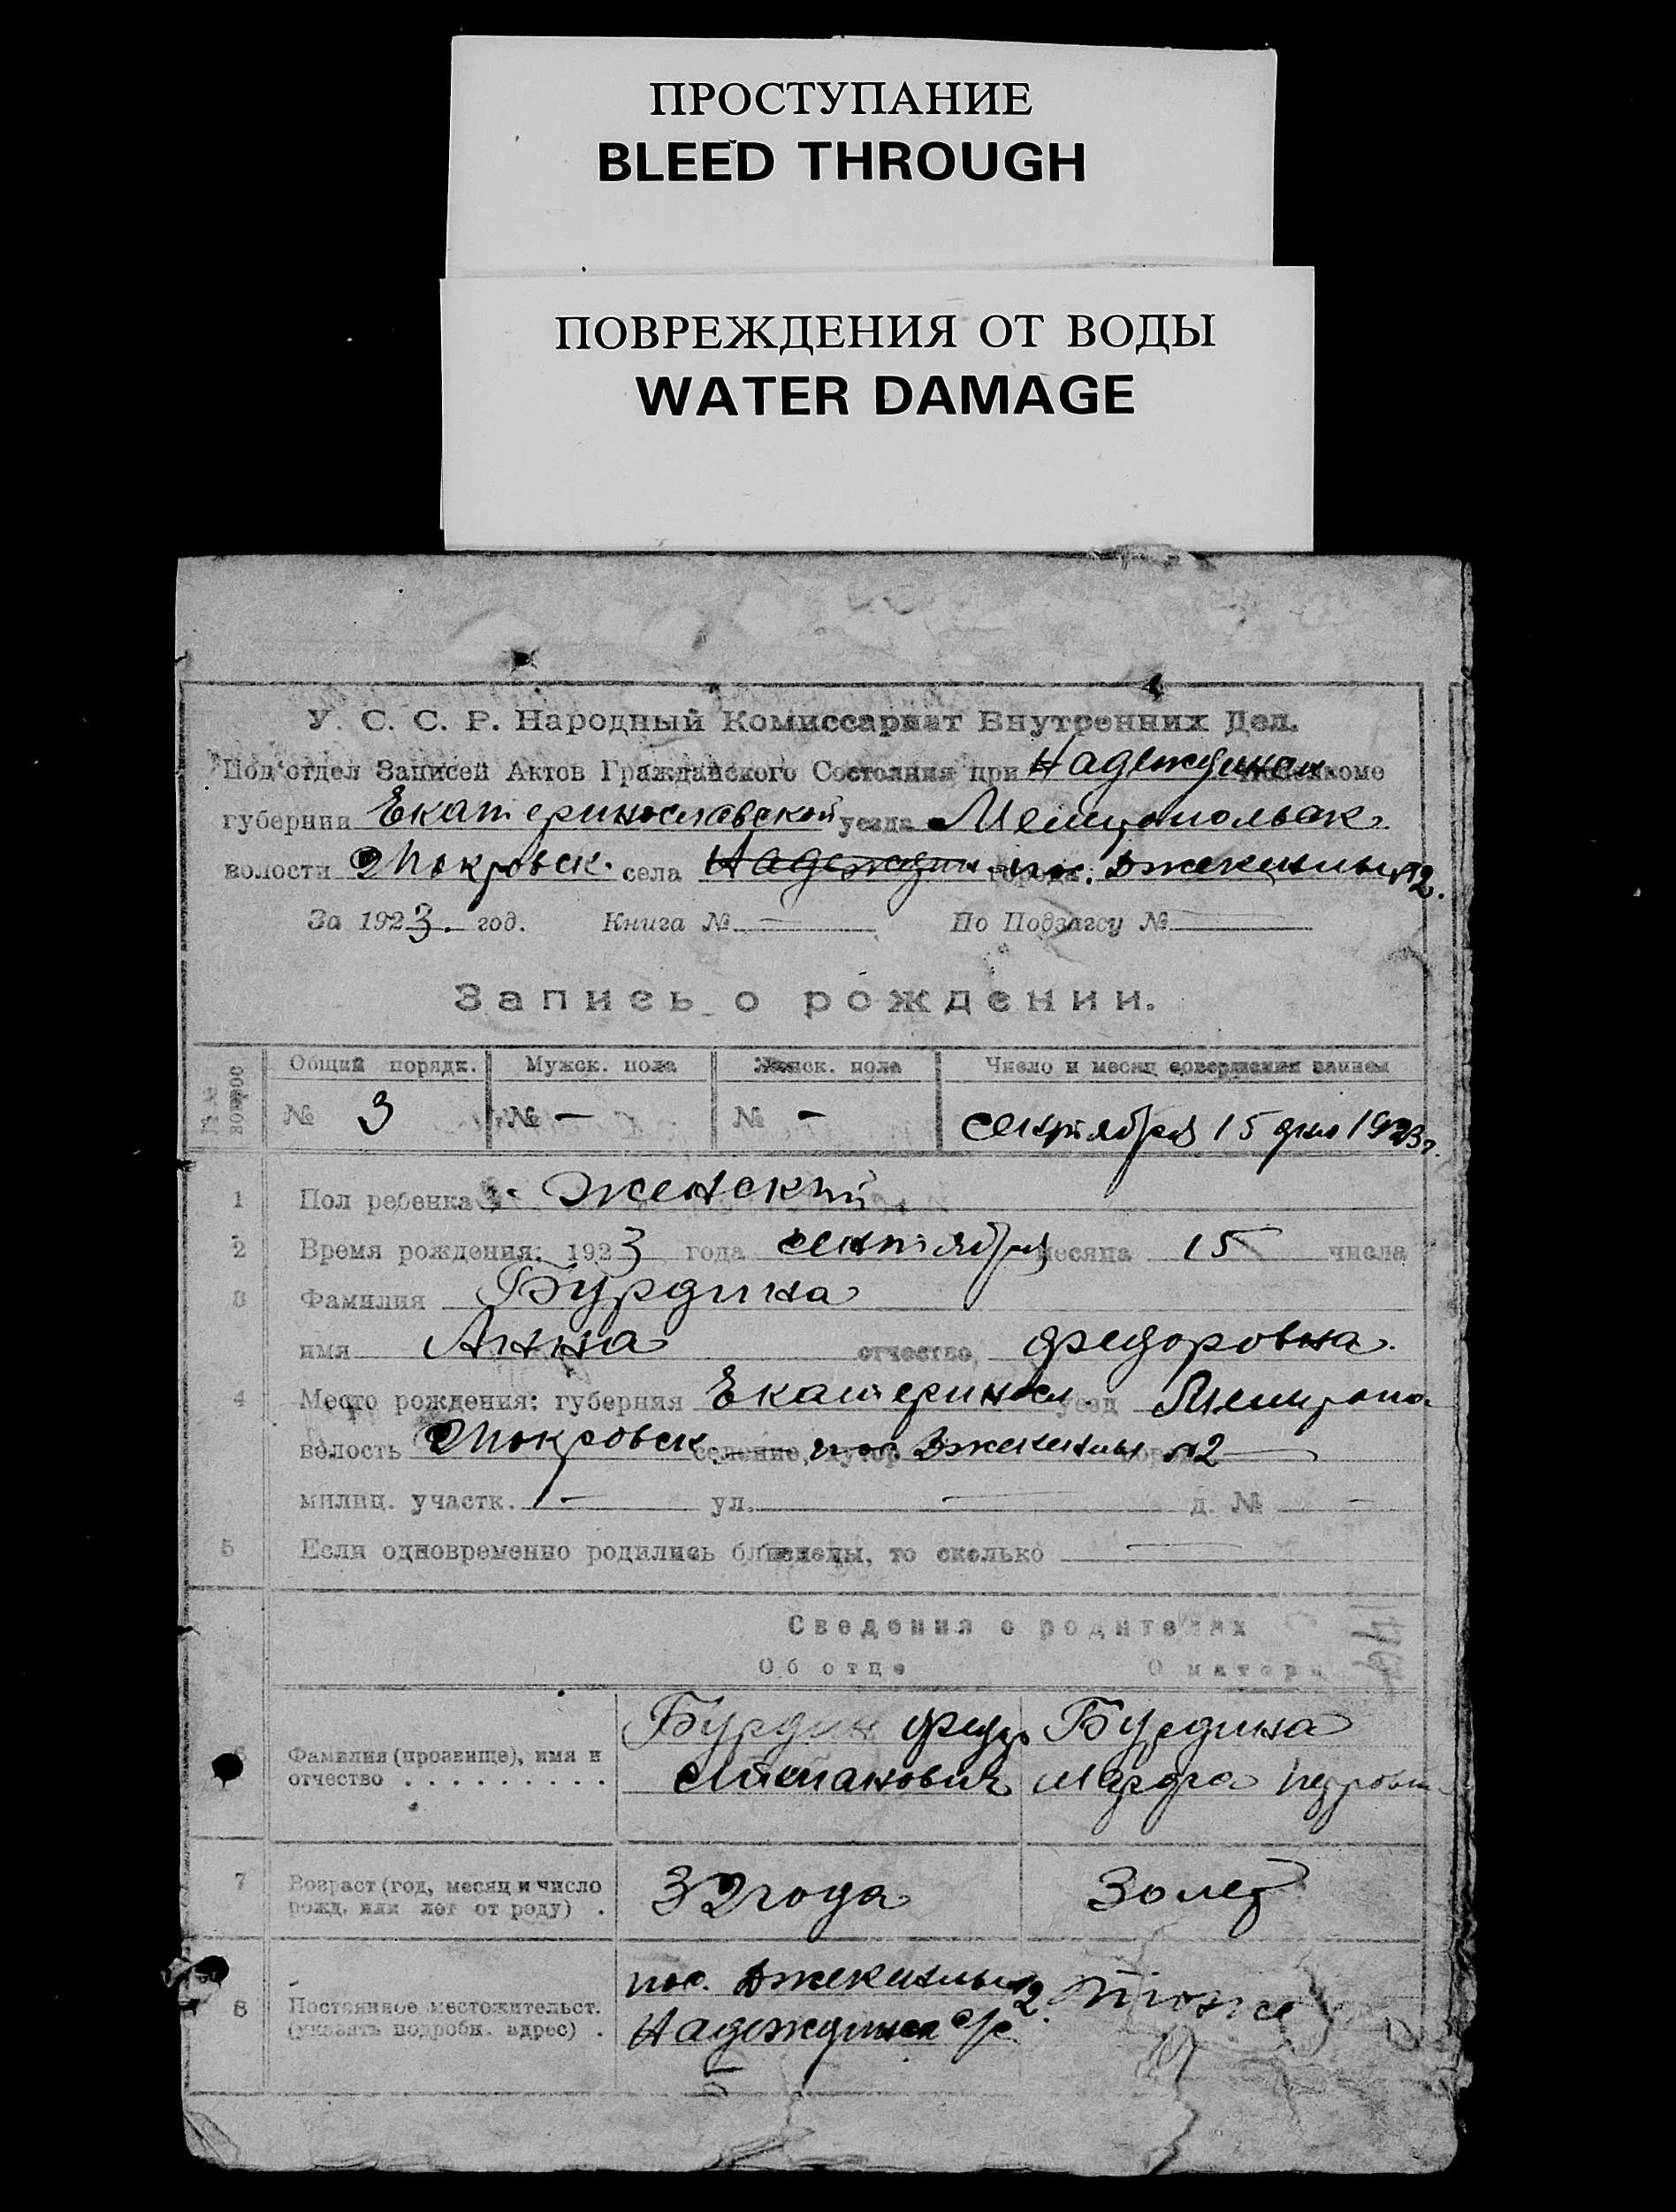 ПРОСТУПАНИЕ
BLEED THROUGH
ПОВРЕЖДЕНИЯ ОТ ВОДЫ
WATER DAMAGE
У. С. С. Р. Народный Комиссариат Внутренних Дел.
Под'отдел Записей Актов Гражданского Состояния при Надеждинск.
губернии Екатеринославской уезда Мелитопольск
волости Покровск. села Надеждин пос. Джекельны №2.
За 1923. год. Книга № — По Подзагсу № —
Запись о рождении.
Общий порядк. Мужск. пола Женск. пола Число и месяц совершения записи
№ 3 № - № - сентября 15 дня 1923 г.
1 Пол ребенка женский
2 Время рождения: 1923 года сентября месяца 15 числа
3 Фамилия Бурдина
имя Анна отчество, Федоровна.
4 Место рождения: губерния Екатериносл. уезд Мелитопо.
волость Покровск селение, хутор пос. №2 —
милиц. участк. — ул. — д. № —
5 Если одновременно родились близнецы, то сколько —
Сведения о родителях
Об отце О матери
Бурдин Федор Бурдина
6 Фамилия (прозвище), имя и
отчество . . . . . . . . . Степанович Марфа Петровн
7 Возраст (год, месяц и число
рожд. или лет от роду) . 32 года 30 лет
пос. №2. тоже
8 Постоянное местожительст.
(указать подробн. адрес) . Надеждинск с/с